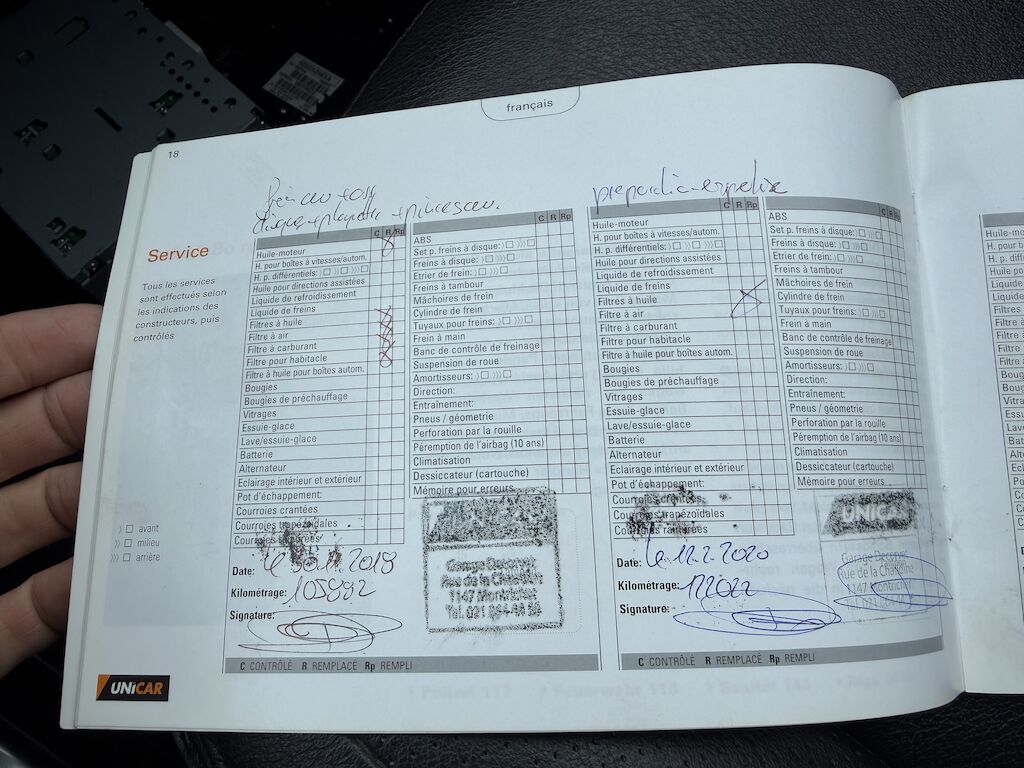 français
18
Service
Tous les services
sont effectués selon
les indications des
constructeurs, puis
contrôlés
⟩ □ avant
⟩⟩ □ milieu
⟩⟩⟩ □ arrière
UNiCAR
C R Rp
Huile-moteur
H. pour boîtes à vitesses/autom.
H. p. différentiels: ⟩□ ⟩⟩□ ⟩⟩⟩□
Huile pour directions assistées
Liquide de refroidissement
Liquide de freins
Filtres à huile
Filtre à air
Filtre à carburant
Filtre pour habitacle
Filtre à huile pour boîtes autom.
Bougies
Bougies de préchauffage
Vitrages
Essuie-glace
Lave/essuie-glace
Batterie
Alternateur
Eclairage intérieur et extérieur
Pot d'échappement:
Courroies crantées
Courroies trapézoïdales
Courroies rainurées
Date: 2018
Kilométrage: 105892
Signature:
C R Rp
ABS
Set p. freins à disque: ⟩□ ⟩⟩⟩□
Freins à disque: ⟩□ ⟩⟩⟩□
Etrier de frein: ⟩□ ⟩⟩⟩□
Freins à tambour
Mâchoires de frein
Cylindre de frein
Tuyaux pour freins: ⟩□ ⟩⟩⟩□
Frein à main
Banc de contrôle de freinage
Suspension de roue
Amortisseurs: ⟩□ ⟩⟩⟩□
Direction:
Entraînement:
Pneus / géométrie
Perforation par la rouille
Péremption de l'airbag (10 ans)
Climatisation
Dessiccateur (cartouche)
Mémoire pour erreurs
Garage Decorvet
Rue de la Chaudine
1147 Montricher
C CONTRÔLÉ R REMPLACÉ Rp REMPLI
C R Rp
Huile-moteur
H. pour boîtes à vitesses/autom.
H. p. différentiels: ⟩□ ⟩⟩□ ⟩⟩⟩□
Huile pour directions assistées
Liquide de refroidissement
Liquide de freins
Filtres à huile
Filtre à air
Filtre à carburant
Filtre pour habitacle
Filtre à huile pour boîtes autom.
Bougies
Bougies de préchauffage
Vitrages
Essuie-glace
Lave/essuie-glace
Batterie
Alternateur
Eclairage intérieur et extérieur
Pot d'échappement:
Courroies crantées
Courroies trapézoïdales
Courroies rainurées
Date: le 12.2.2020
Kilométrage: 122022
Signature:
C R Rp
ABS
Set p. freins à disque: ⟩□ ⟩⟩⟩□
Freins à disque: ⟩□ ⟩⟩⟩□
Etrier de frein: ⟩□ ⟩⟩⟩□
Freins à tambour
Mâchoires de frein
Cylindre de frein
Tuyaux pour freins: ⟩□ ⟩⟩⟩□
Frein à main
Banc de contrôle de freinage
Suspension de roue
Amortisseurs: ⟩□ ⟩⟩⟩□
Direction:
Entraînement:
Pneus / géométrie
Perforation par la rouille
Péremption de l'airbag (10 ans)
Climatisation
Dessiccateur (cartouche)
Mémoire pour erreurs
UNiCAR
Garage Decorvet
Rue de la Chaudine
1147 Montricher
C CONTRÔLÉ R REMPLACÉ Rp REMPLI